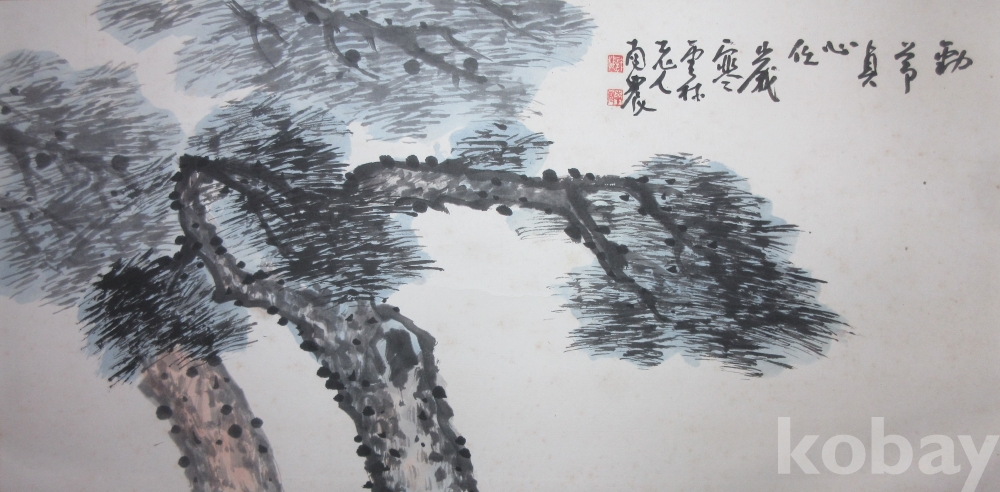 勁節
貞心
任
歲寒
雲林
老人
南農
kobay